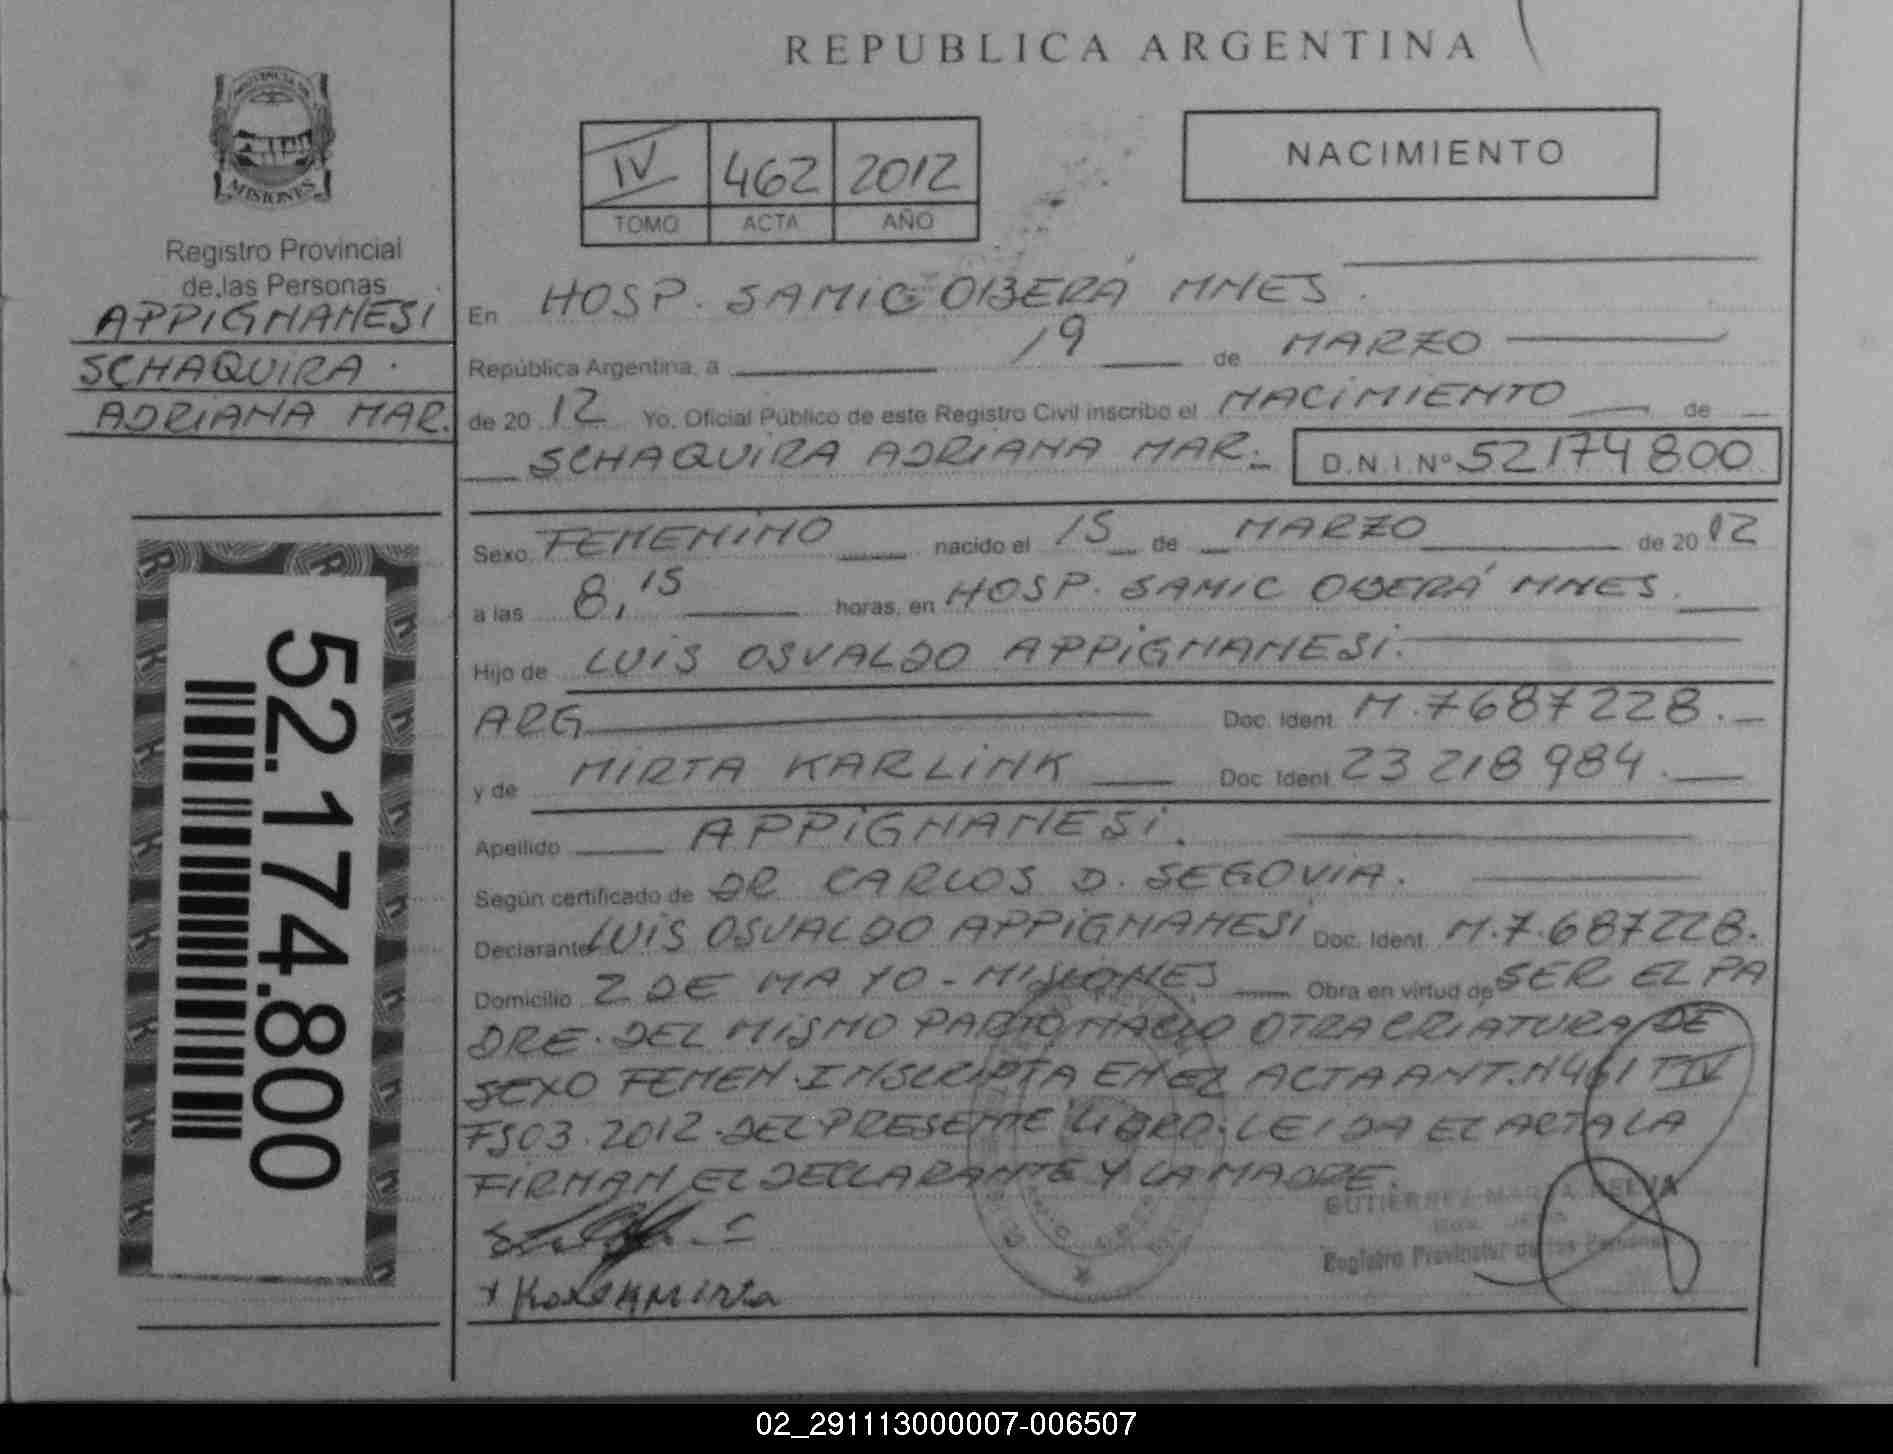 REPUBLICA ARGENTINA
PROVINCIA DE
MISIONES
Registro Provincial
de las Personas
APPIGNANESI
SCHAQUIRA.
ADRIANA MAR.
52.174.800
IV 462 2012
TOMO ACTA AÑO
NACIMIENTO
En HOSP. SAMIC OBERÁ MNES.
República Argentina, a 19 de MARZO
de 2012 Yo, Oficial Público de este Registro Civil inscribo el NACIMIENTO de
SCHAQUIRA ADRIANA MAR. D.N.I. Nº 52174800
Sexo FEMENINO nacido el 15 de MARZO de 2012
a las 8,15 horas, en HOSP. SAMIC OBERÁ MNES.
Hijo de LUIS OSVALDO APPIGNANESI.
ARG Doc. Ident. M.7687228.
y de MIRTA KARLINK Doc. Ident. 23218984.
Apellido APPIGNANESI.
Según certificado de DR CARLOS D. SEGOVIA.
Declarante LUIS OSVALDO APPIGNANESI Doc. Ident. M.7.687228.
Domicilio 2 DE MAYO - MISIONES Obra en virtud de SER EL PA
DRE. DEL MISMO PARTO NACIO OTRA CRIATURA DE
SEXO FEMEN. INSCRIPTA EN EL ACTA ANT. N461 TIV
FS03. 2012. DEL PRESENTE LIBRO. LEIDA EL ACTA LA
FIRMAN EL DECLARANTE Y LA MADRE.
GUTIERREZ MARIA
Registro Provincial de las Personas
Mirta
02_291113000007-006507